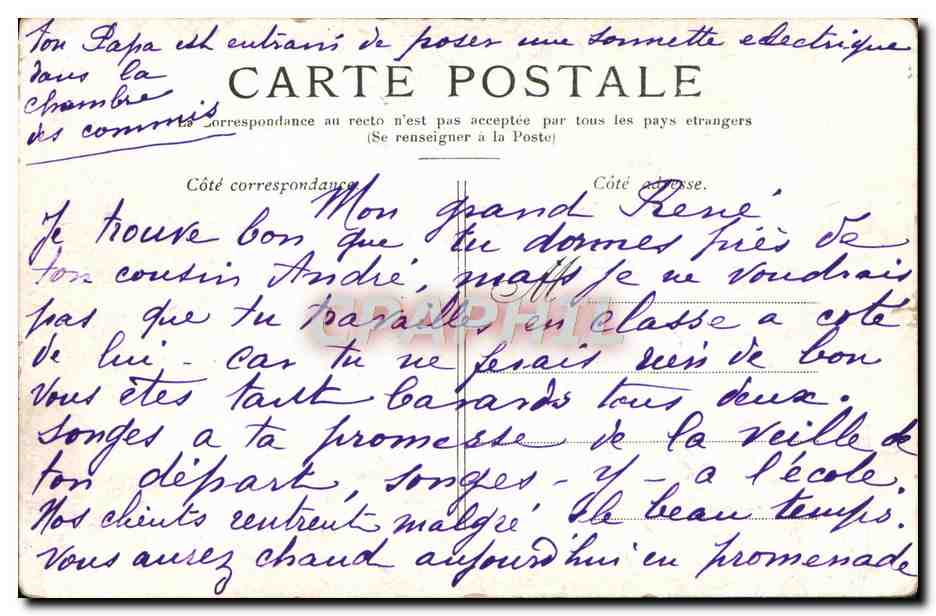 ton Papa est entrain de poser une sonnette electrique
dans la
chambre
des commis
CARTE POSTALE
La Correspondance au recto n'est pas acceptée par tous les pays etrangers
(Se renseigner à la Poste)
Côté correspondance.
Côté adresse.
Mon grand René
Je trouve bon que tu dormes près de
ton cousin André, mais je ne voudrais
pas que tu travailles en classe a coté
de lui - car tu ne ferais rien de bon
vous êtes tant bavards tous deux.
songes a ta promesse de la veille de
ton départ, songes-y-a l'école.
Nos clients rentrent malgré le beau temps.
Vous aurez chaud aujourd'hui en promenade
CPAPHIL